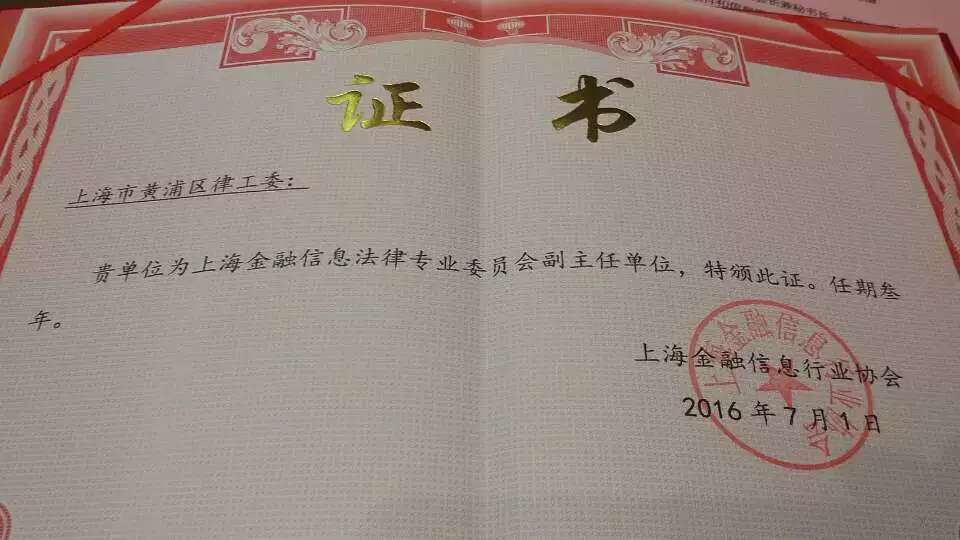 证书
上海市黄浦区律工委：
贵单位为上海金融信息法律专业委员会副主任单位，特颁此证。任期叁
年。
上海金融信息行业协会
2016年7月1日
上海金融信息行业协会